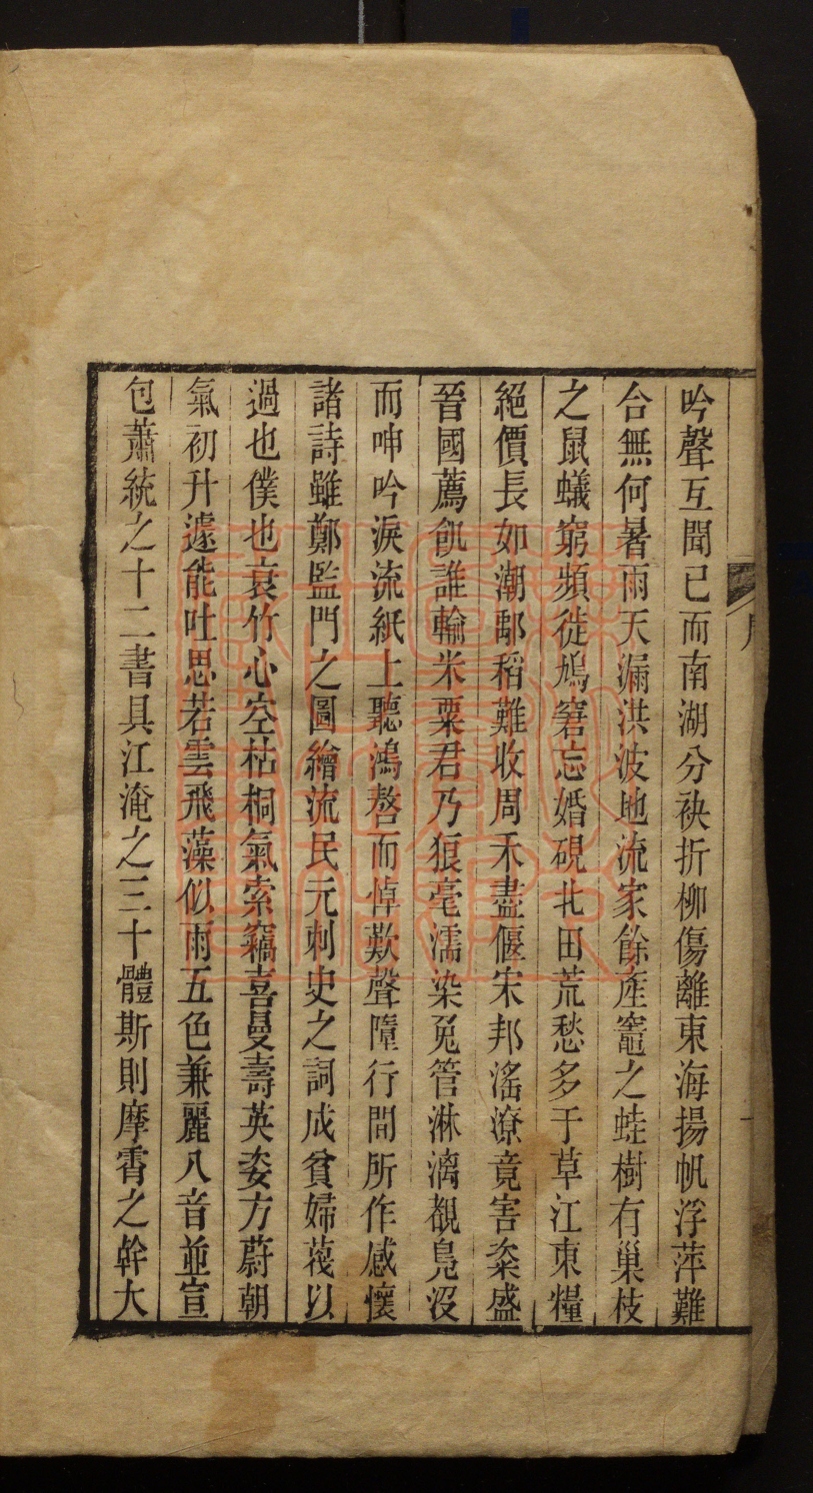 吟聲互聞已而南湖分袂折柳傷離東海揚帆浮萍難
合無何暑雨天漏洪波地流家餘產竈之蛙樹有巢枝
之鼠蟻窮頻徙鳩窘忘婚硯北田荒愁多于草江東糧
絕價長如潮鄅稻難收周禾盡偃宋邦滛潦竟害粢盛
晉國薦飢誰輸米粟君乃狼毫濡染兎管淋漓覩鳧沒
而呻吟淚流紙上聽鴻嗸而悼歎聲隨行間所作感懷
諸詩雖鄭監門之圖繪流民元刺史之詞成貧婦蔑以
過也僕也衰竹心空枯桐氣索竊喜曼壽英姿方蔚朝
氣初升遽能吐思若雲飛藻似雨五色兼麗八音並宣
包蕭統之十二書具江淹之三十體斯則摩霄之幹大